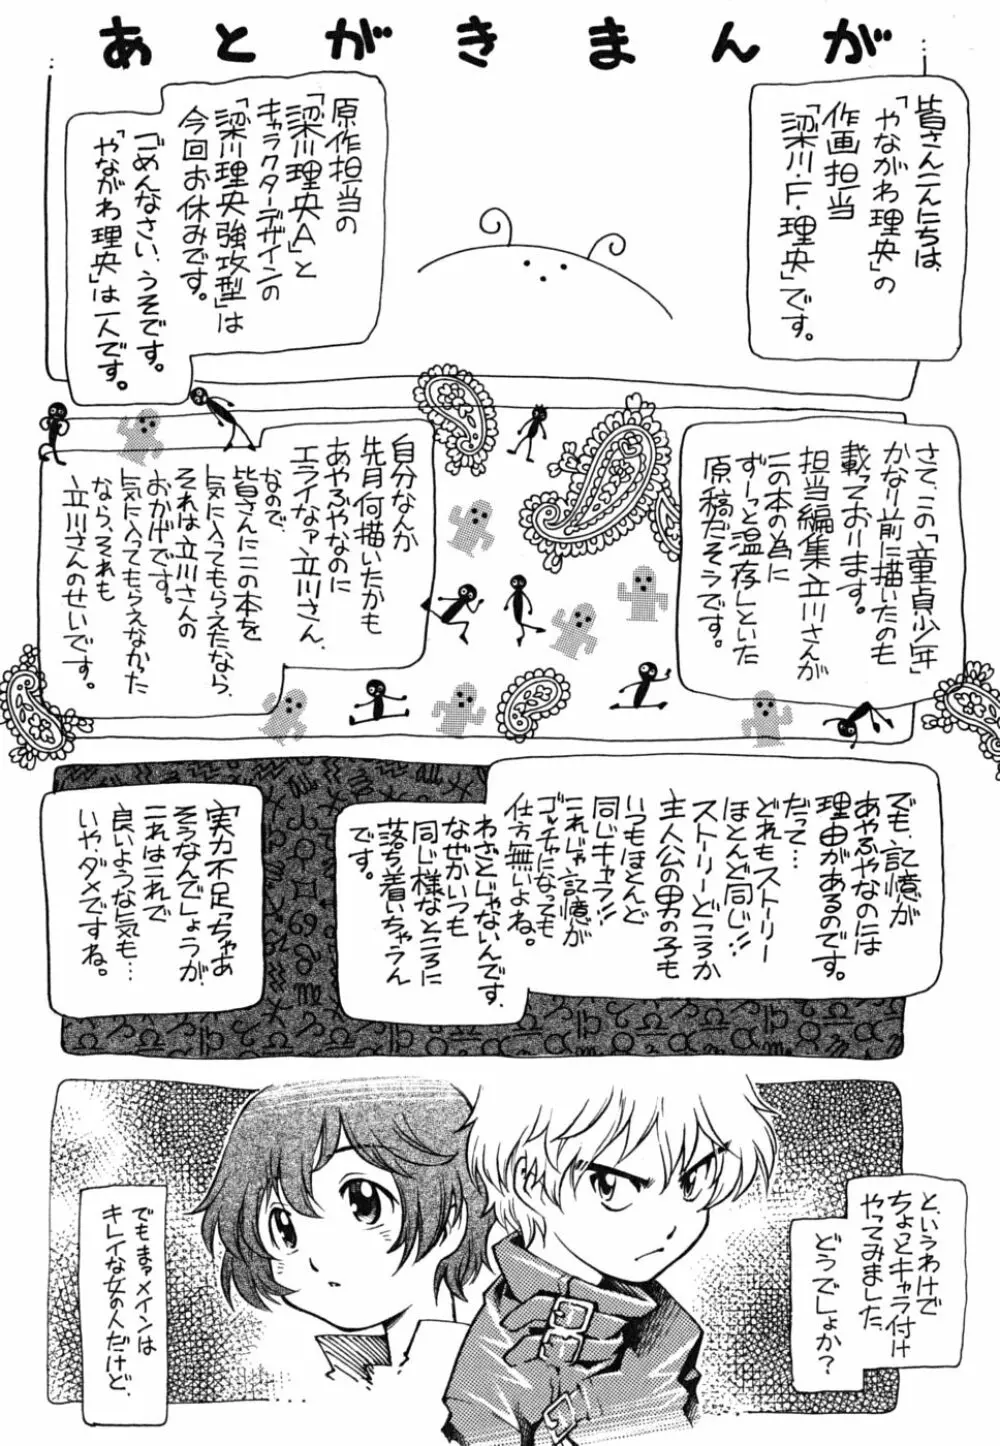 あとがきまんが
皆さんこんにちは、
「やながわ理央」の
作画担当
「梁川・F・理央」です。
原作担当の
「梁川理央A」と
キャラクターデザインの
「梁川理央強攻型」は
今回お休みです。
「ごめんなさい、うそです。
「やながわ理央」は一人です。
さて、この「童貞少年」
かなり前に描いたのも
載っております。
担当編集立川さんが
この本の為に
ずーっと温存しといた
原稿だそうです。
自分なんか
先月何描いたかも
あやふやなのに
エライなァ立川さん、
なので、
皆さんにこの本を
気に入ってもらえたなら、
それは立川さんの
おかげです。
気に入ってもらえなかった
なら、それも
立川さんのせいです。
でも、記憶が
あやふやなのには
理由があるのです。
だって…
どれもストーリー
ほとんど同じ!!
ストーリーどころか
主人公の男の子も
いつもほとんど
同じキャラ!!
これじゃ記憶が
ゴッチャになっても
仕方無いよね。
わざとじゃないんです、
なぜかいつも
同じ様なところに
落ち着いちゃうん
です。
実力不足っちゃあ
そうなんでしょうが、
これはこれで
良いような気も…
いやダメですね。
と、いうわけで
ちょっとキャラ付け
やってみました
どうでしょか?
でもまァメインは
キレイな女の人だけど、